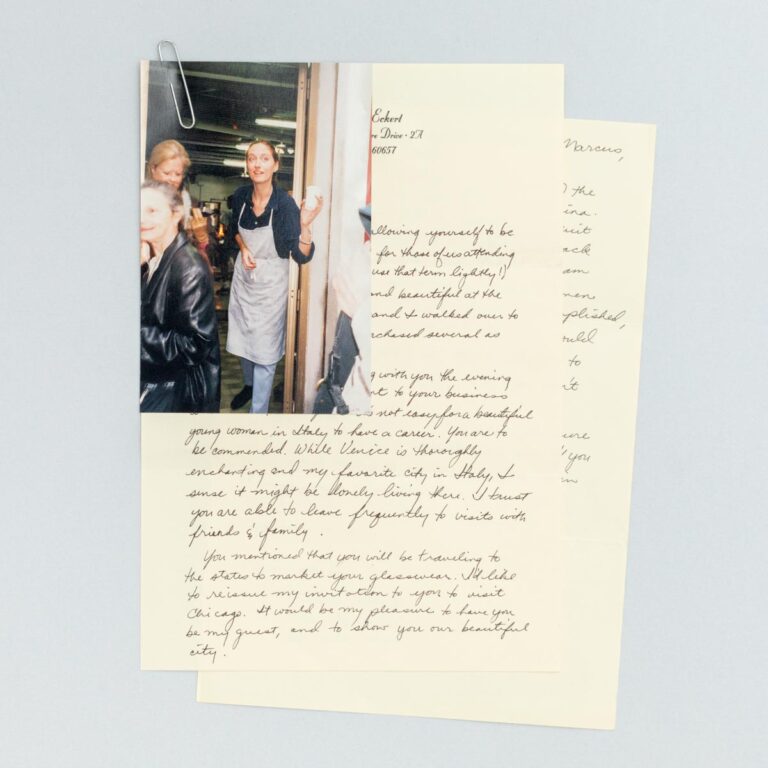 Eckert
re Drive · 2A
60657
llowing yourself to be
for those of us attending
use that term lightly!)
nd beautiful at the
and I walked over to
rchased several as
g with you the evening
nt to your business
s not easy for a beautiful
young woman in Italy to have a career. You are to
be commended. While Venice is thoroghly
enchanting and my favorite city in Italy, I
sense it might be lonely living there. I trust
you are able to leave frequently to visits with
friends & family.
You mentioned that you will be traveling to
the states to market your glasswear. I'd like
to reissue my invitation to you to visit
Chicago. It would be my pleasure to have you
be my guest, and to show you our beautiful
city!
Marcus,
the
ina.
ack
am
plished,
ould
to
n't
ure
you